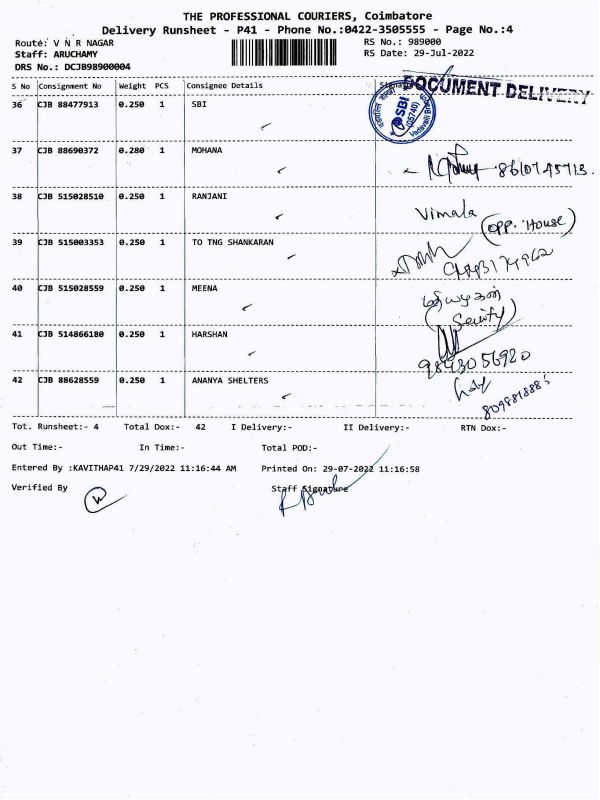 THE PROFESSIONAL COURIERS, Coimbatore
Delivery Runsheet - P41 - Phone No.:0422-3505555 - Page No.:4
Route: V N R NAGAR
RS No.: 989000
Staff: ARUCHAMY
RS Date: 29-Jul-2022
DRS No.: DCJB98900004
S No Consignment No Weight PCS Consignee Details
DOCUMENT DELIVERY
36 CJB 88477913 0.250 1 SBI
SBI
(05740)
37 CJB 88690372 0.280 1 MOHANA
38 CJB 515028510 0.250 1 RANJANI
Vimala
(opp. House)
39 CJB 515003353 0.250 1 TO TNG SHANKARAN
40 CJB 515028559 0.250 1 MEENA
41 CJB 514866180 0.250 1 HARSHAN
9843056920
42 CJB 88628559 0.250 1 ANANYA SHELTERS
Tot. Runsheet:- 4 Total Dox:- 42 I Delivery:- II Delivery:- RTN Dox:-
Out Time:- In Time:- Total POD:-
Entered By :KAVITHAP41 7/29/2022 11:16:44 AM Printed On: 29-07-2022 11:16:58
Verified By Staff Signature